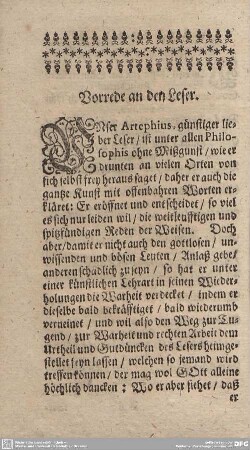 Vorrede an den Leser.
UNser Artephius, günstiger lie-
ber Leser / ist unter allen Philo-
sophis ohne Mißgunst / wie er
drunten an vielen Orten von
sich selbst frey heraus saget / daher er auch die
gantze Kunst mit offenbahren Worten er-
kläret: Er eröffnet und entscheidet / so viel
es sich nur leiden wil / die weitleufftigen und
spitzfündigen Reden der Weisen. Doch
aber / damit er nicht auch den gottlosen / un-
wissenden und bösen Leuten / Anlaß gebe /
anderen schädlich zu seyn / so hat er unter
einer künstlichen Lehrart in seinen Wider-
holungen die Warheit verdecket / indem er
dieselbe bald bekräfftiget / bald wiederumb
verneinet / und wil also den Weg zur Tu-
gend / zur Warheit und rechten Arbeit dem
Urtheil und Gutdüncken des Lesers heimge-
stellet seyn lassen / welchen so jemand wird
treffen können / der mag wol GOtt alleine
höchlich dancken: Wo er aber siehet / daß
er
DFG